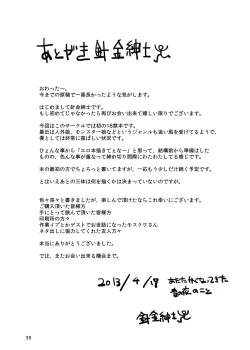 あとがき 針金紳士
おわったー。
今までの原稿で一番長かったような気がします。
はじめまして針金紳士です。
もし初めてじゃなかったら再びお会い出来て嬉しい限りでございます。
今回はこのサークルでは初の18禁本です。
最近は人外娘、モンスター娘などというジャンルも追い風を受けてるようで、
僕としては非常に嬉しく思っております。
ひょんな事から「エロ本描きてぇなー」と思って、結構前から準備はした
ものの、色んな事が重なって締め切り間際になってしまいました。
本の最初の方でちょろっと書いてますが、一応もう少しだけ続く予定です。
とはいえあとの三体は何を描くかは決まっていないのですが。
色々長々と書きましたが、楽しんで頂けたならこれ幸いにございます。
ご購入頂いた皆様方
手にとって読んで頂いた皆様方
印刷所の方々
作業イプとかゲストでお世話になったモスクワさん
ネタ出しに協力してくれた友人方々
本当にありがとうございました。
では、またお会い出来る機会まで。
2013/4/19
あたたかくなってきた
春の夜のこと
針金紳士
39